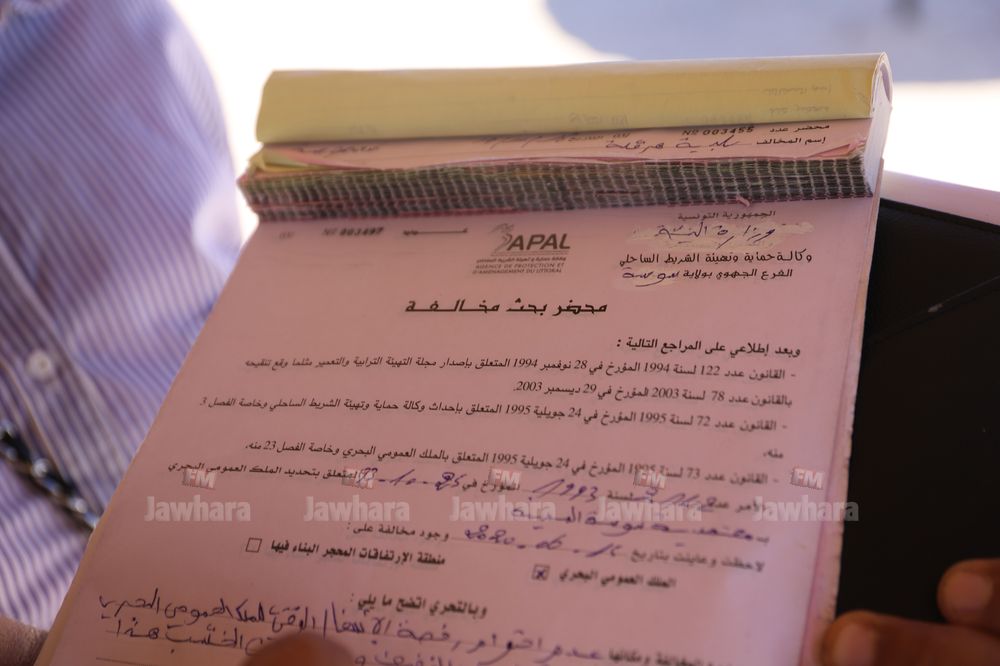 محضر عدد Nº 003455
إسم المخالف
الجمهورية التونسية
وزارة البيئة
وكالة حماية وتهيئة الشريط الساحلي
الفرع الجهوي بولاية سوسة
APAL
وكالة حماية و تهيئة الشريط الساحلي
AGENCE DE PROTECTION ET
D'AMÉNAGEMENT DU LITTORAL
Nº 003497
محضر بحث مخالفة
وبعد إطلاعي على المراجع التالية :
- القانون عدد 122 لسنة 1994 المؤرخ في 28 نوفمبر 1994 المتعلق بإصدار مجلة التهيئة الترابية والتعمير مثلما وقع تنقيحه
بالقانون عدد 78 لسنة 2003 المؤرخ في 29 ديسمبر 2003.
- القانون عدد 72 لسنة 1995 المؤرخ في 24 جويلية 1995 المتعلق بإحداث وكالة حماية وتهيئة الشريط الساحلي وخاصة الفصل 3
منه.
- القانون عدد 73 لسنة 1995 المؤرخ في 24 جويلية 1995 المتعلق بالملك العمومي البحري وخاصة الفصل 23 منه.
لسنة 1993 المؤرخ في المتعلق بتحديد الملك العمومي البحري
لاحظت وعاينت بتاريخ وجود مخالفة على :
الملك العمومي البحري منطقة الإرتفاقات المحجر البناء فيها
وبالتحري اتضح ما يلي :
عدم احترام رخصة الوقتي للملك العمومي البحري
Jawhara FM Jawhara FM Jawhara FM Jawhara FM Jawhara FM